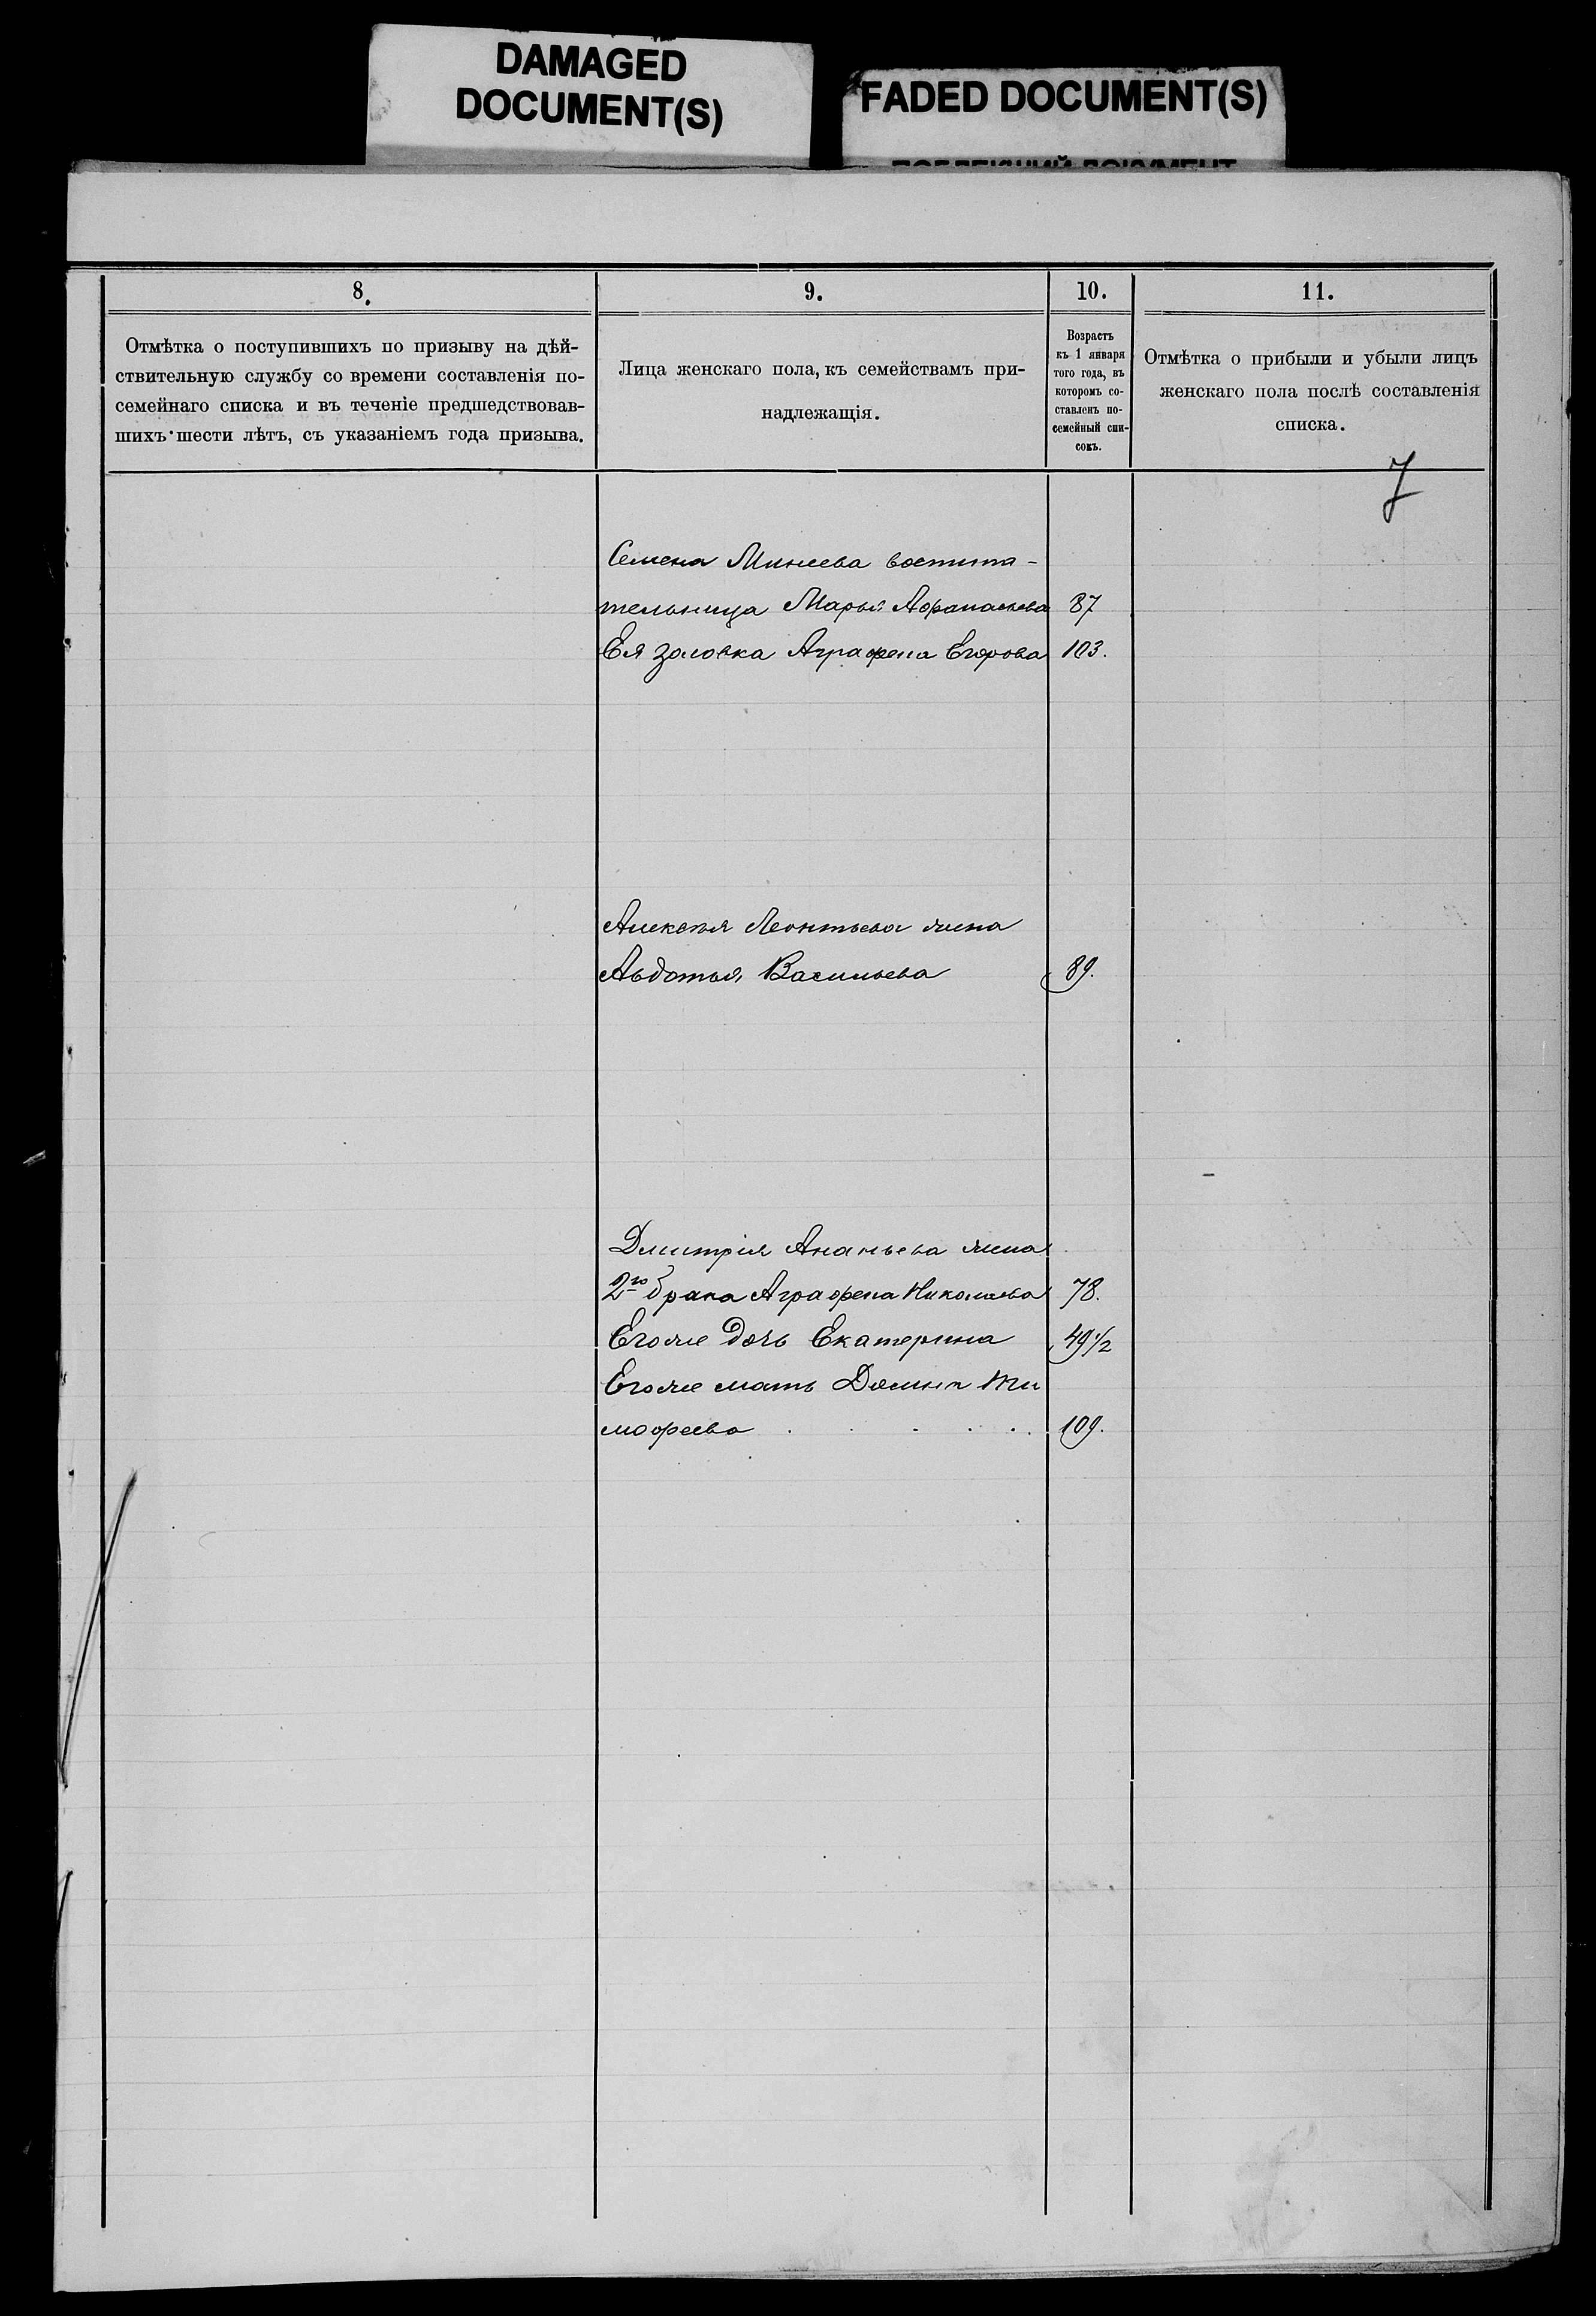 DAMAGED
DOCUMENT(S)
FADED DOCUMENT(S)
8.
Отмѣтка о поступившихъ по призыву на дѣй-
ствительную службу со времени составленія по-
семейнаго списка и въ теченіе предшедствовав-
шихъ шести лѣтъ, съ указаніемъ года призыва.
9.
Лица женскаго пола, къ семействамъ при-
надлежащія.
10.
Возрастъ
къ 1 января
того года, въ
которомъ со-
ставленъ по-
семейный спи-
сокъ.
11.
Отмѣтка о прибыли и убыли лицъ
женскаго пола послѣ составленія
списка.
7
Семена Минеева воспита-
тельница Марья Афанасьева 87
Ея золовка Аграфена Егорова 103.
Алексѣя Леонтьева жена
Авдотья Васильева 89.
Дмитрія Ананьева жена
2го брака Аграфена Николаева 78.
Егоже дочь Екатерина 49 1/2
Егоже мать Домна Ти
мофеева . . . . . . 109.